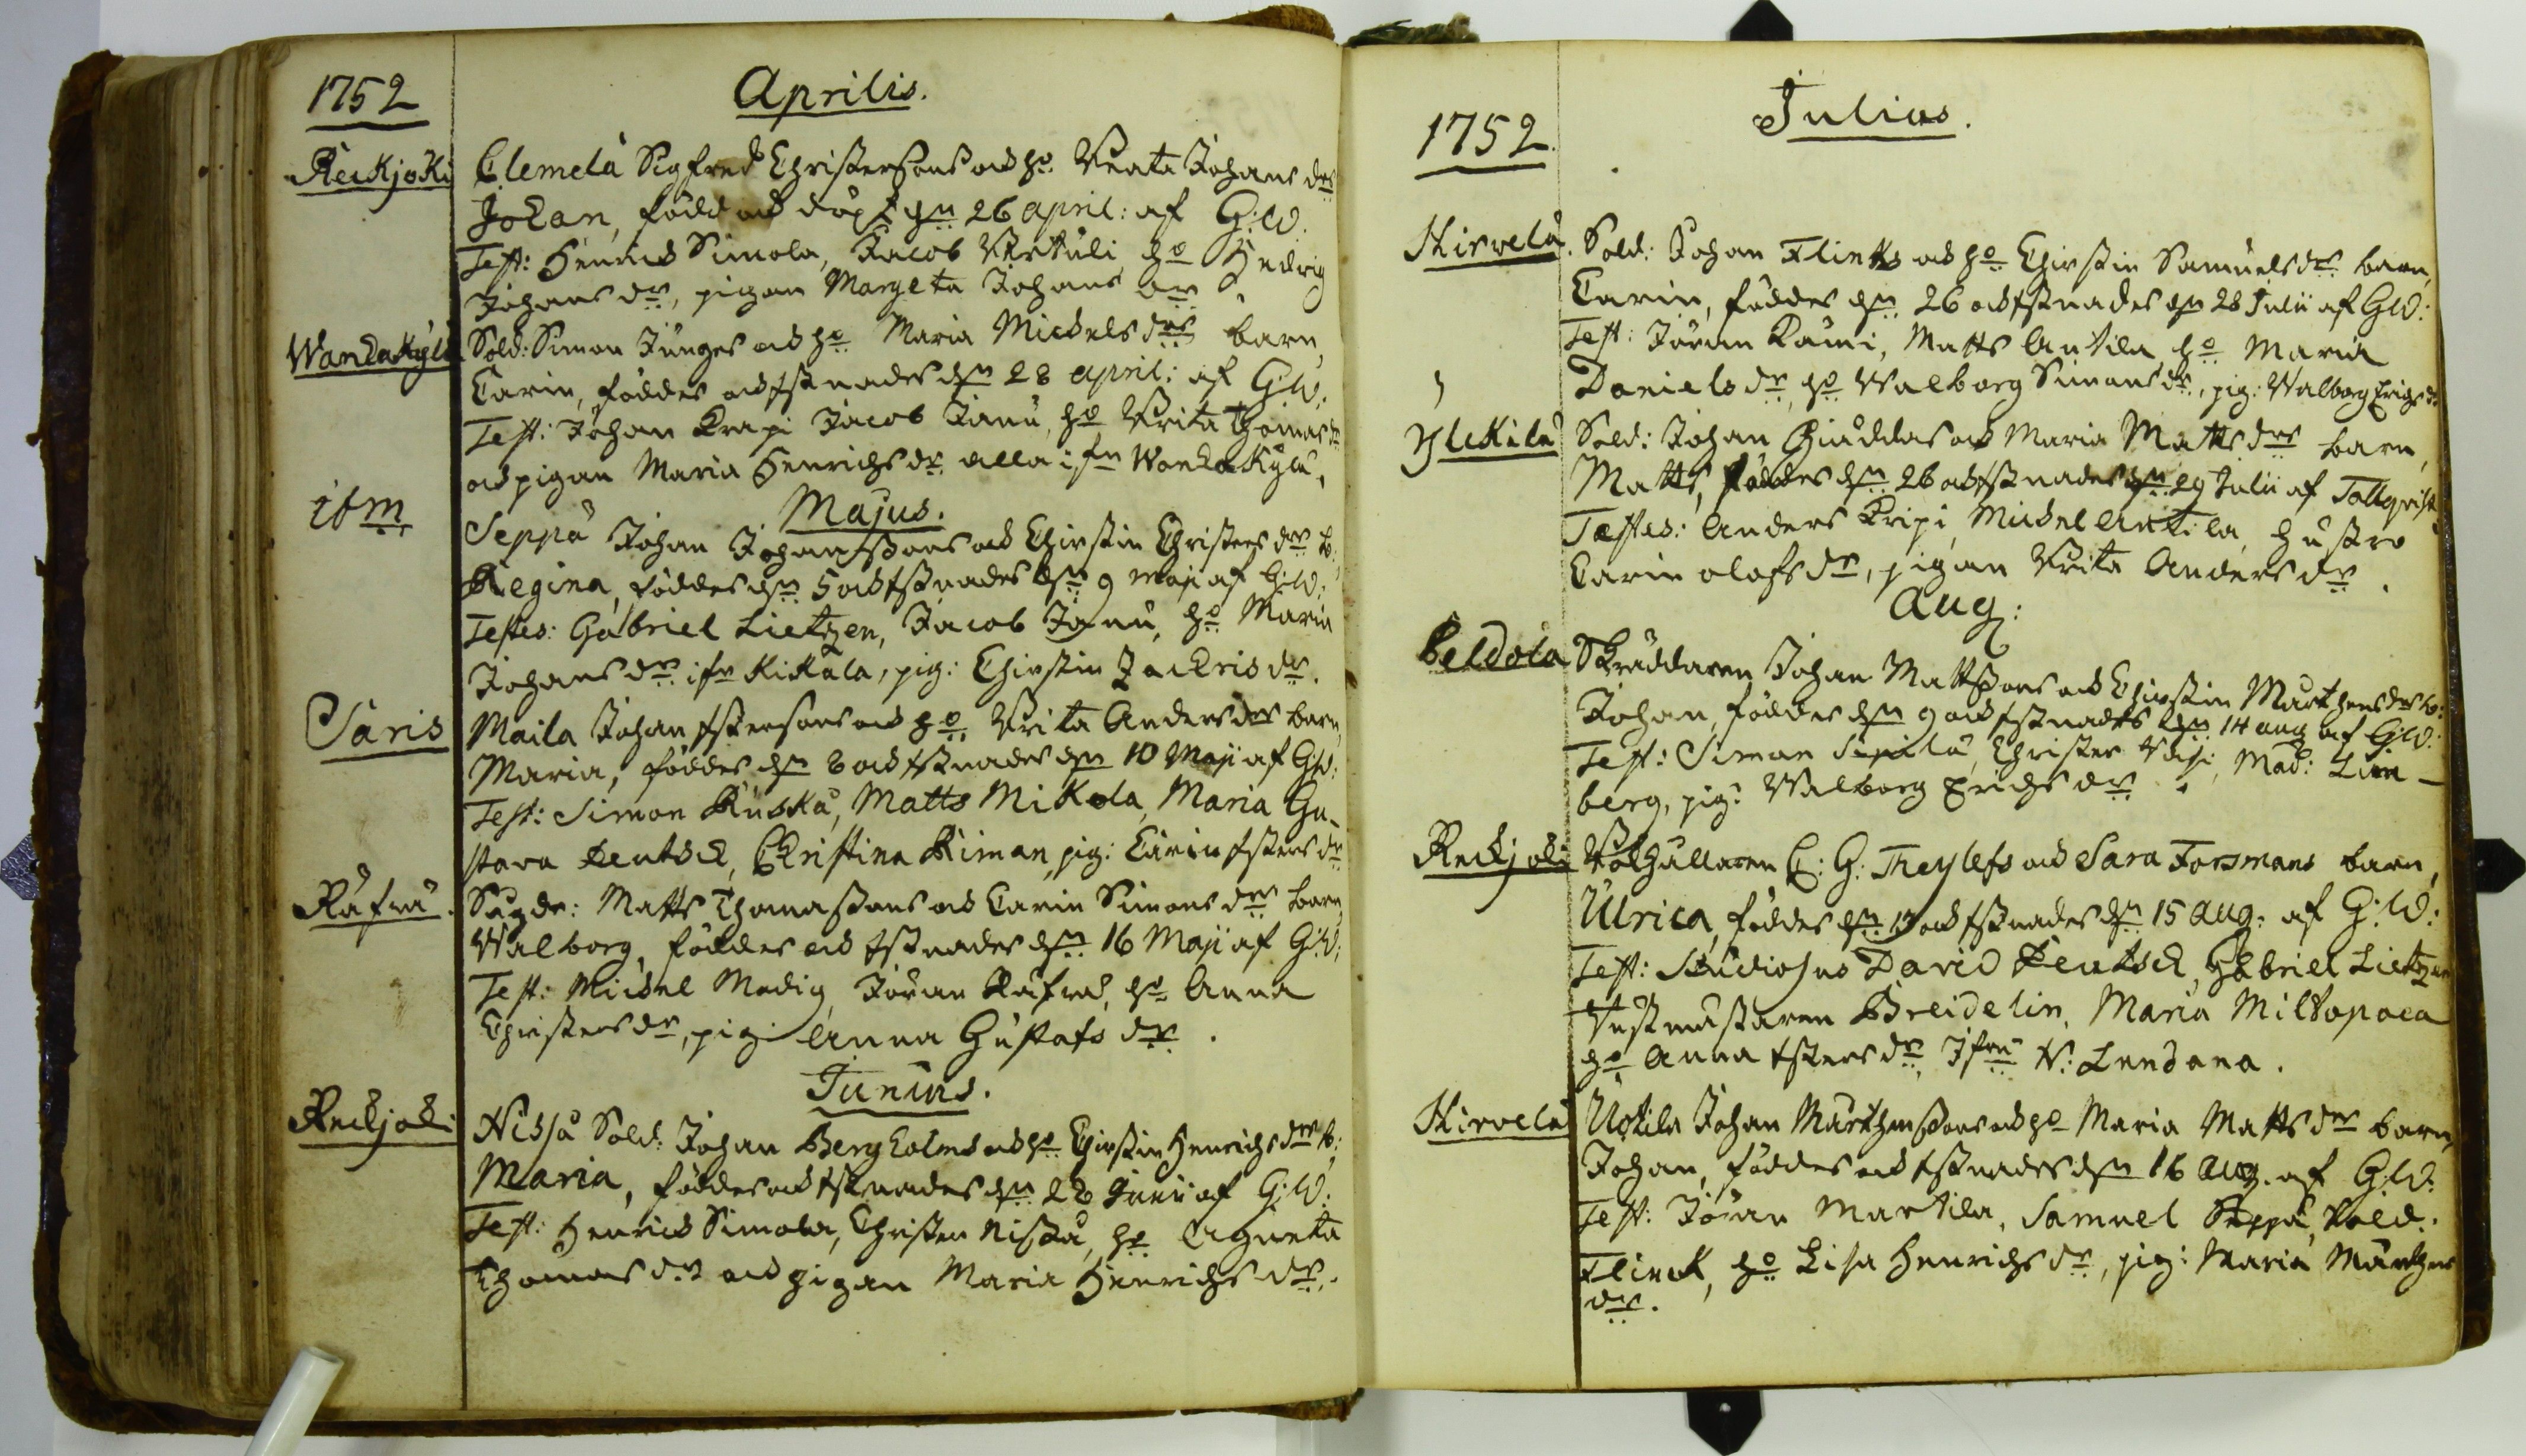 1752
Aprilis.
Reckjoki Clemelä Sigfred Christersons och ho Beata Johans dr
Johan, född och döpt dn 26 april: af G:W.
Test: Henrich Simola, Jacob Perttuli ho Hedvig
Johans dr, pigan Margeta Johans dr
Wanhakylä Sold: Simon Junges och ho Maria Michels drs barn,
Carin, föddes och Xstnades dn 28 april: af G:W.
Test: Johan Krapi Jacob Janu, ho Brita Thomas dr
och pigan Maria Henrichs dr alla ifrn Wanhakylä.
Majus.
ibm Seppä Johan Johanssons och Chirstin Christers drs b:
Regina, föddes dn 5 och Xstnades dn 9 Maji af G:W.
Testes: Gabriel Lietzen, Jacob Janu, ho Maria
Johans dr ifr Kikala, pig: Chirstin Zachris dr.
Saris Maila Johan Xstersons och ho Brita Anders drs barn,
Maria, föddes dn 8 och Xstnades dn 10 Maji af G:W:
Test: Simon Kuska, Matts Mikola, Maria Gu-
stava Deutsch, Christina Kiman, pig: Carin Xsters dr
Räfvä. Matts Thomassons och Carin Simons drs barn
Walborg, föddes och Xstnades dn 16 Maji af G:W:
Test: Michel Modig, Jöran Räfvä, ho Anna
Christers dr, pig: Anna Gustafs dr.
Junius.
Reckjoki Sold: Johan Bergholms och ho Chirstin Henrichs drs b:
Maria, föddes och Xstnades dn 28 Junii af G:W:
Test: Henrich Simola, Christer ho Agneta
Thomas dr och pigan Maria Henrichs dr.
1752.
Julius.
Hirvelä. Sold: Johan Flinks och ho Chirstin Samuels drs barn,
Carin, föddes dn 26 och Xstnades dn 28 Julii af G:W:
Test: Jöran Rämi, Matts Antila ho Maria
Daniels dr, ho Walborg Simons dr, pig: Walborg Erichs dr
Ylikilä Sold: Johan och Maria Matts drs barn,
Matts, föddes dn 26 och Xstnades dn 29 Julii af Tallqvist
Testes: Anders Kripi, Michel Antila, hustro
Carin Olofs dr, pigan Brita Anders dr.
Aug:
Celdola Skräddaren Johan Mattssons och Chirstin Marthens drs b:
Johan, föddes dn 9 och Xstnades dn 14 aug af G:W:
Test: Simon Seppälä, Christer Mad: Lim-
berg, pig: Walborg Erichs dr.
Reckjoki Bokhållaren C: G: Theylefs och Sara Forsmans barn,
Ulrica, föddes dn och Xstnades dn 15 Aug: af G:W:
Test: Studiosus David Deutsch, Gabriel Lietzen
Breidelin, Maria Miltopaea
ho Anna Xsters dr, Jfru N: Lundana.
Hirvelä Uotila Johan Marthenssons och ho Maria Matts drs barn,
Johan, föddes och Xstnades dn 16 Aug. af G:W:
Test: Jöran Martila, Samuel Seppä, Sold:
Flinck, ho Lisa Henrichs dr, pig: Maria Marthens
dr.